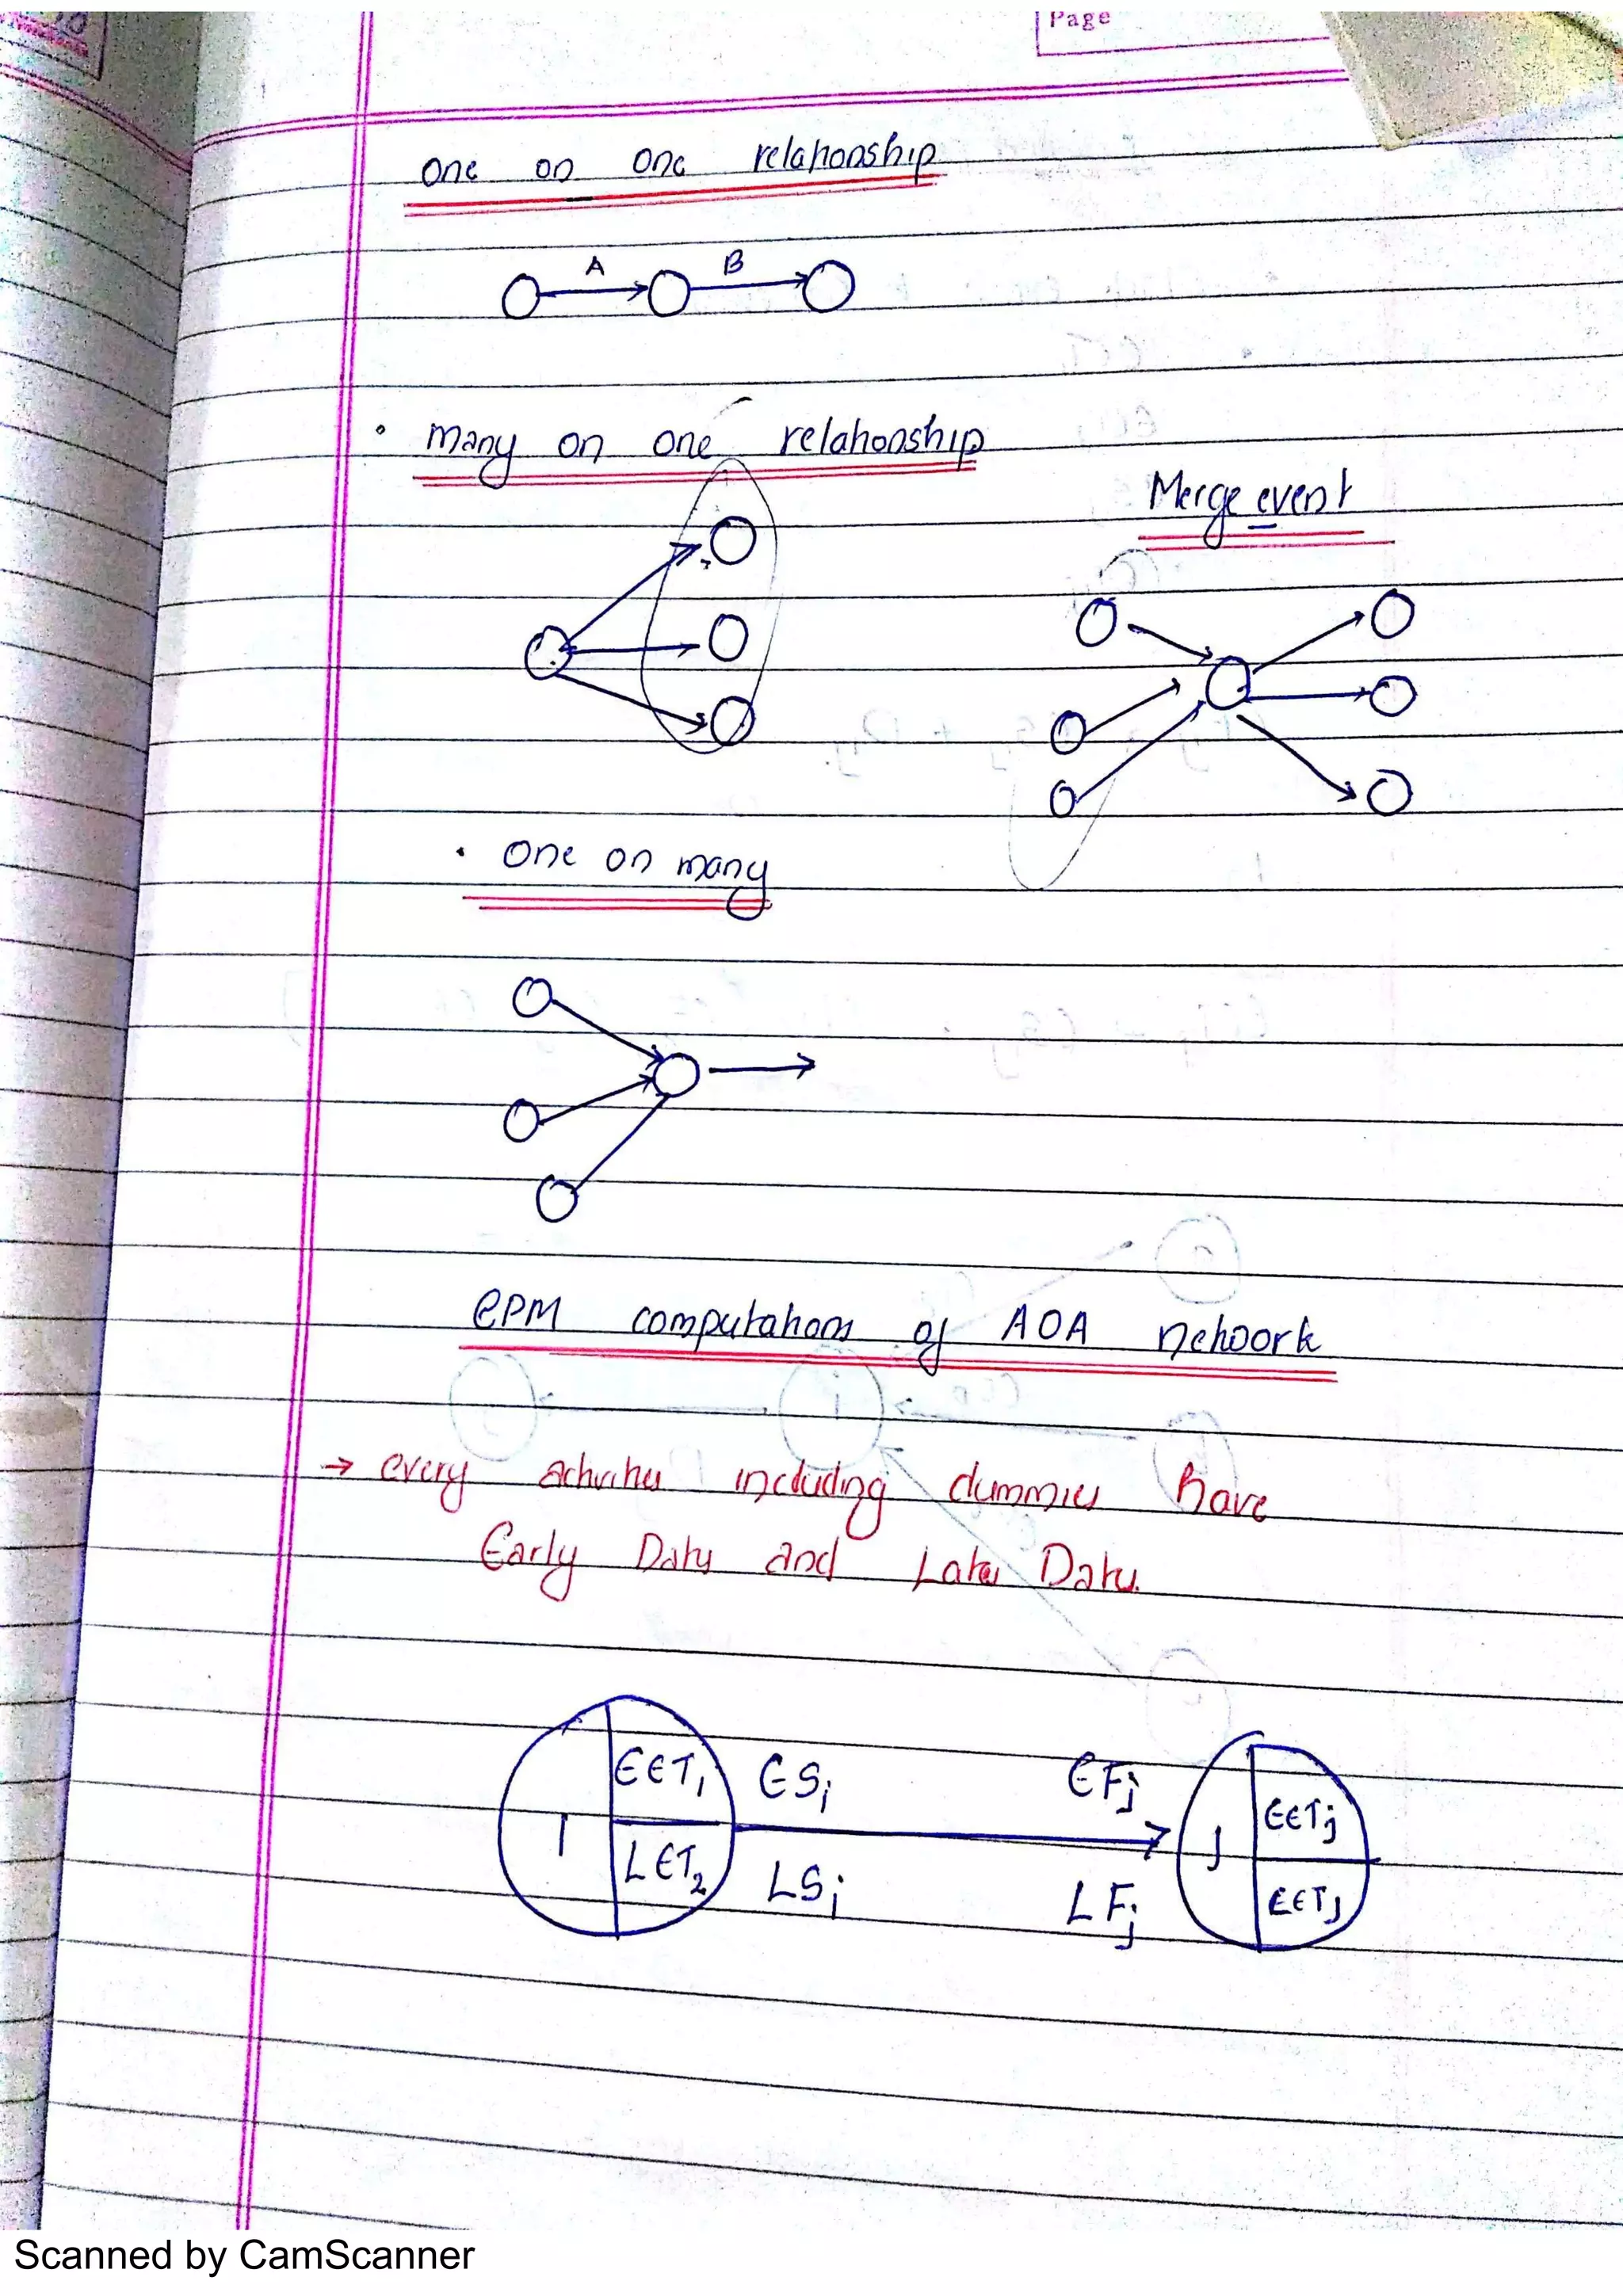 Page
one on one relationship
A B
• many on one relationship
Merge event
• one on many
CPM computations of AOA network
→ every activities including dummies have
Early Dates and Late Dates.
EET1 ESi EFj EETj
i j
LET2 LSi LFj EETj
Scanned by CamScanner